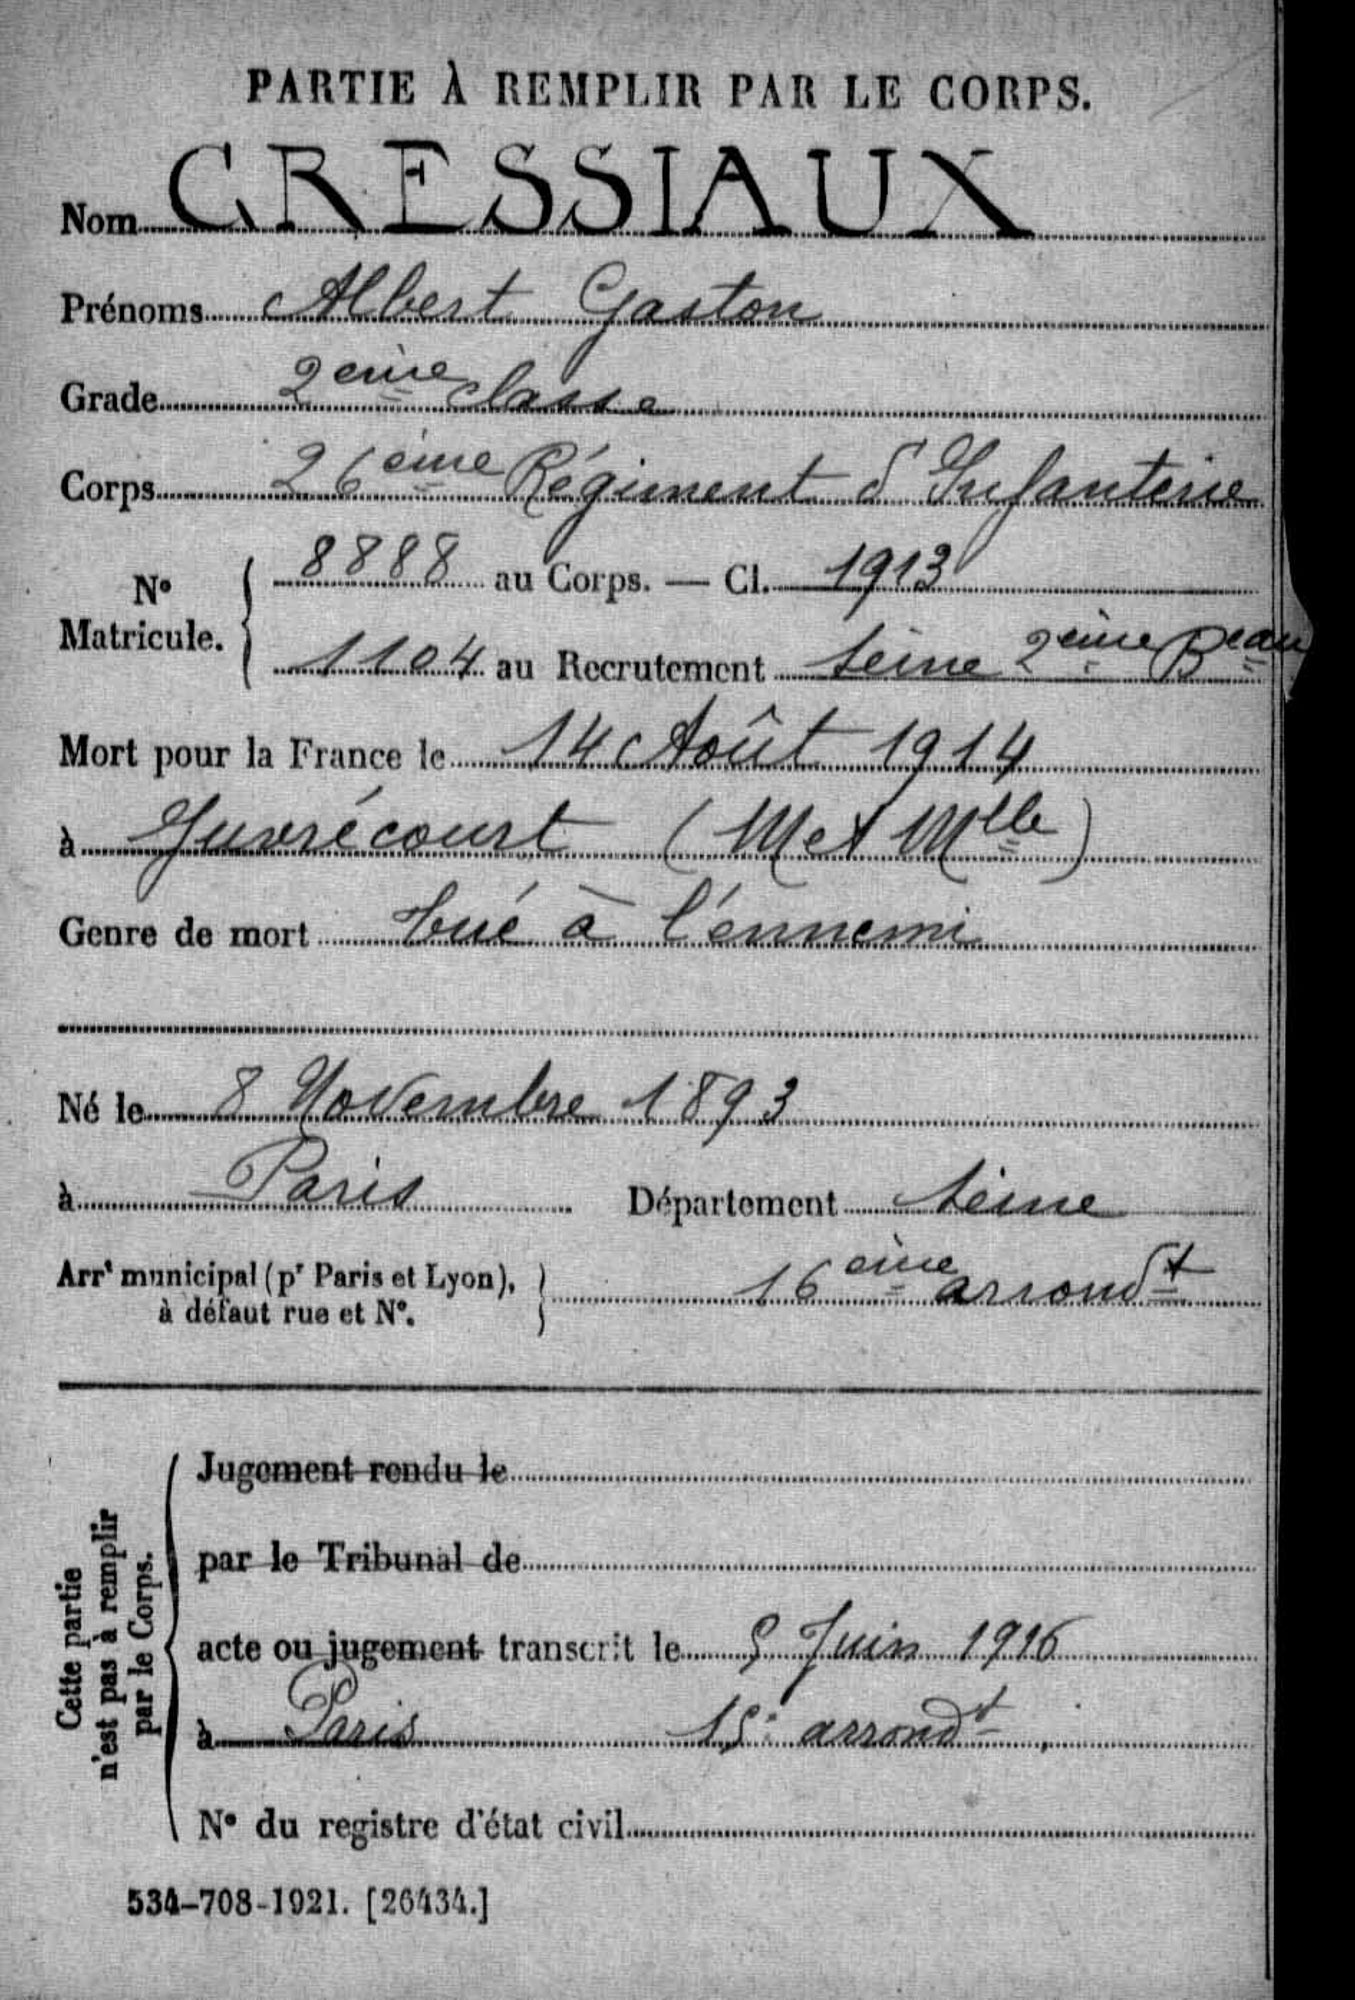 PARTIE À REMPLIR PAR LE CORPS.
Nom CRESSIAUX
Prénoms Albert Gaston
Grade 2ème classe
Corps 26ème Régiment d'Infanterie
N° Matricule. 8888 au Corps. — Cl. 1913
1104 au Recrutement Seine 2ème Beau
Mort pour la France le 14 Août 1914
à Juvrécourt (M et Mlle)
Genre de mort tué à l'ennemi
Né le 8 Novembre 1893
à Paris Département Seine
Arrt municipal (pr Paris et Lyon), à défaut rue et N°. 16ème arrondt
Cette partie n'est pas à remplir par le Corps.
Jugement rendu le
par le Tribunal de
acte ou jugement transcrit le 5 Juin 1916
à Paris 15e arrondt
N° du registre d'état civil
534-708-1921. [26434.]